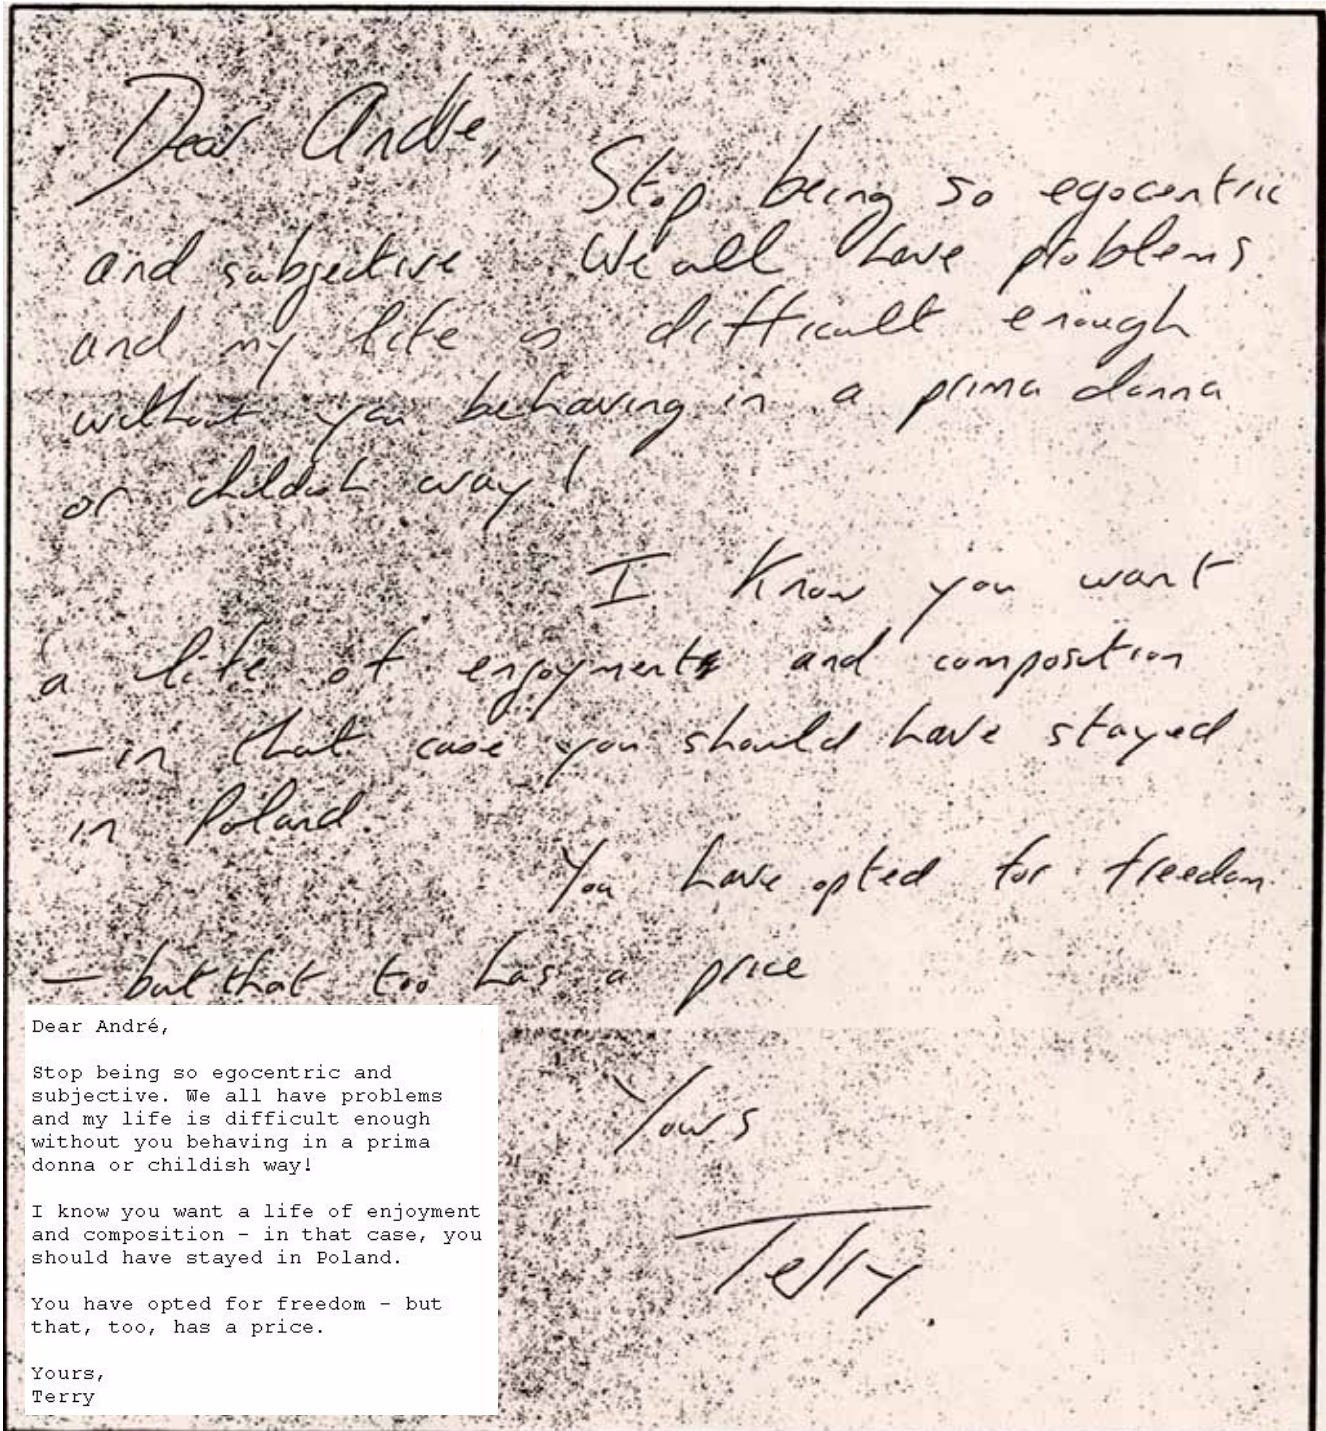 Dear Andre,
Stop being so egocentric
and subjective We all have problems
and my life is difficult enough
without you behaving in a prima donna
or childish way!
I know you want
a life of enjoyment and composition
- in that case you should have stayed
in Poland.
You have opted for freedom
- but that too has a price
Yours
Terry.
Dear André,
Stop being so egocentric and
subjective. We all have problems
and my life is difficult enough
without you behaving in a prima
donna or childish way!
I know you want a life of enjoyment
and composition - in that case, you
should have stayed in Poland.
You have opted for freedom - but
that, too, has a price.
Yours,
Terry